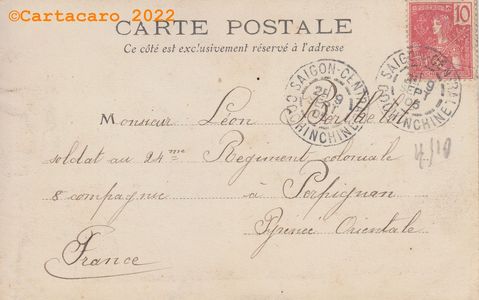 ©Cartacaro_2022
CARTE POSTALE
Ce côté est exclusivement réservé à l'adresse
10
SAIGON-CENTRAL
COCHINCHINE
SAIGON-CENTRAL
COCHINCHINE
Monsieur Léon
soldat au 24me Regiment coloniale
8 compagnie à Perpignan
Pyrénée Orientale
France